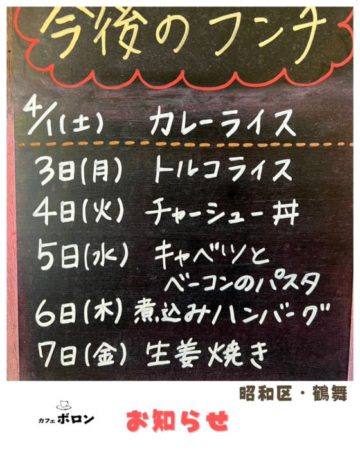 今後のランチ
4/1(土) カレーライス
3日(月) トルコライス
4日(火) チャーシュー丼
5日(水) キャベツと
ベーコンのパスタ
6日(木) 煮込みハンバーグ
7日(金) 生姜焼き
昭和区・鶴舞
カフェ ボロン
お知らせ